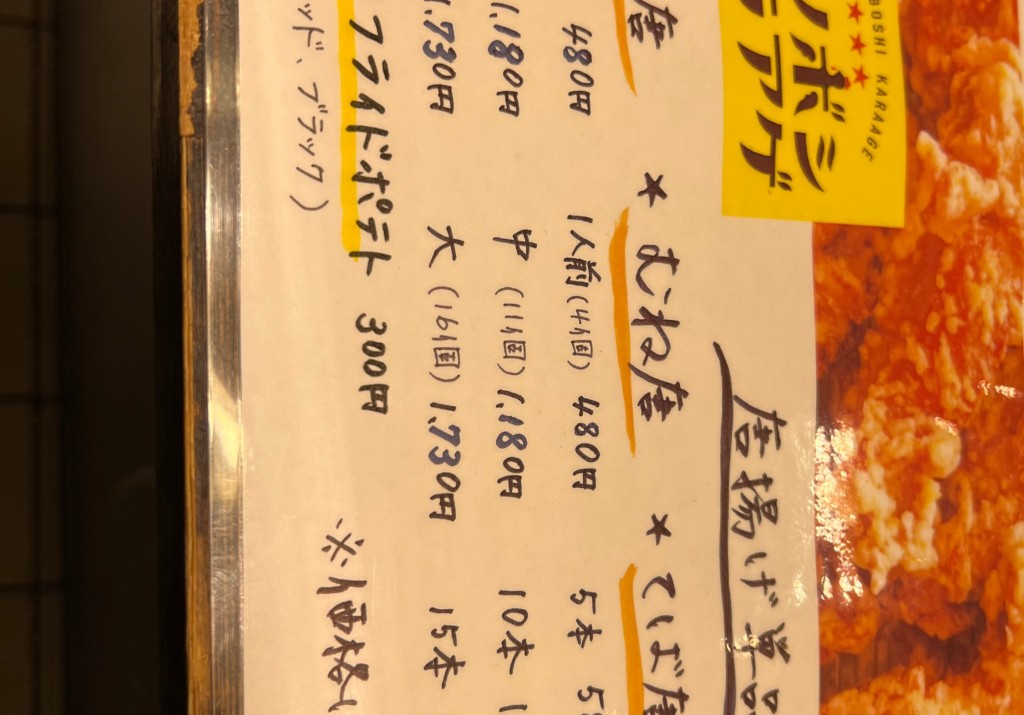 BOSHI KARAAGE
ンボシ
唐揚げ単品
唐
480円
1,180円
1,730円
★むね唐
1人前(4ヶ国) 480円
中(11ヶ国) 1,180円
大(16ヶ国) 1,730円
★てば唐
5本
10本
15本
フライドポテト 300円
ッド、ブラック)
※価格